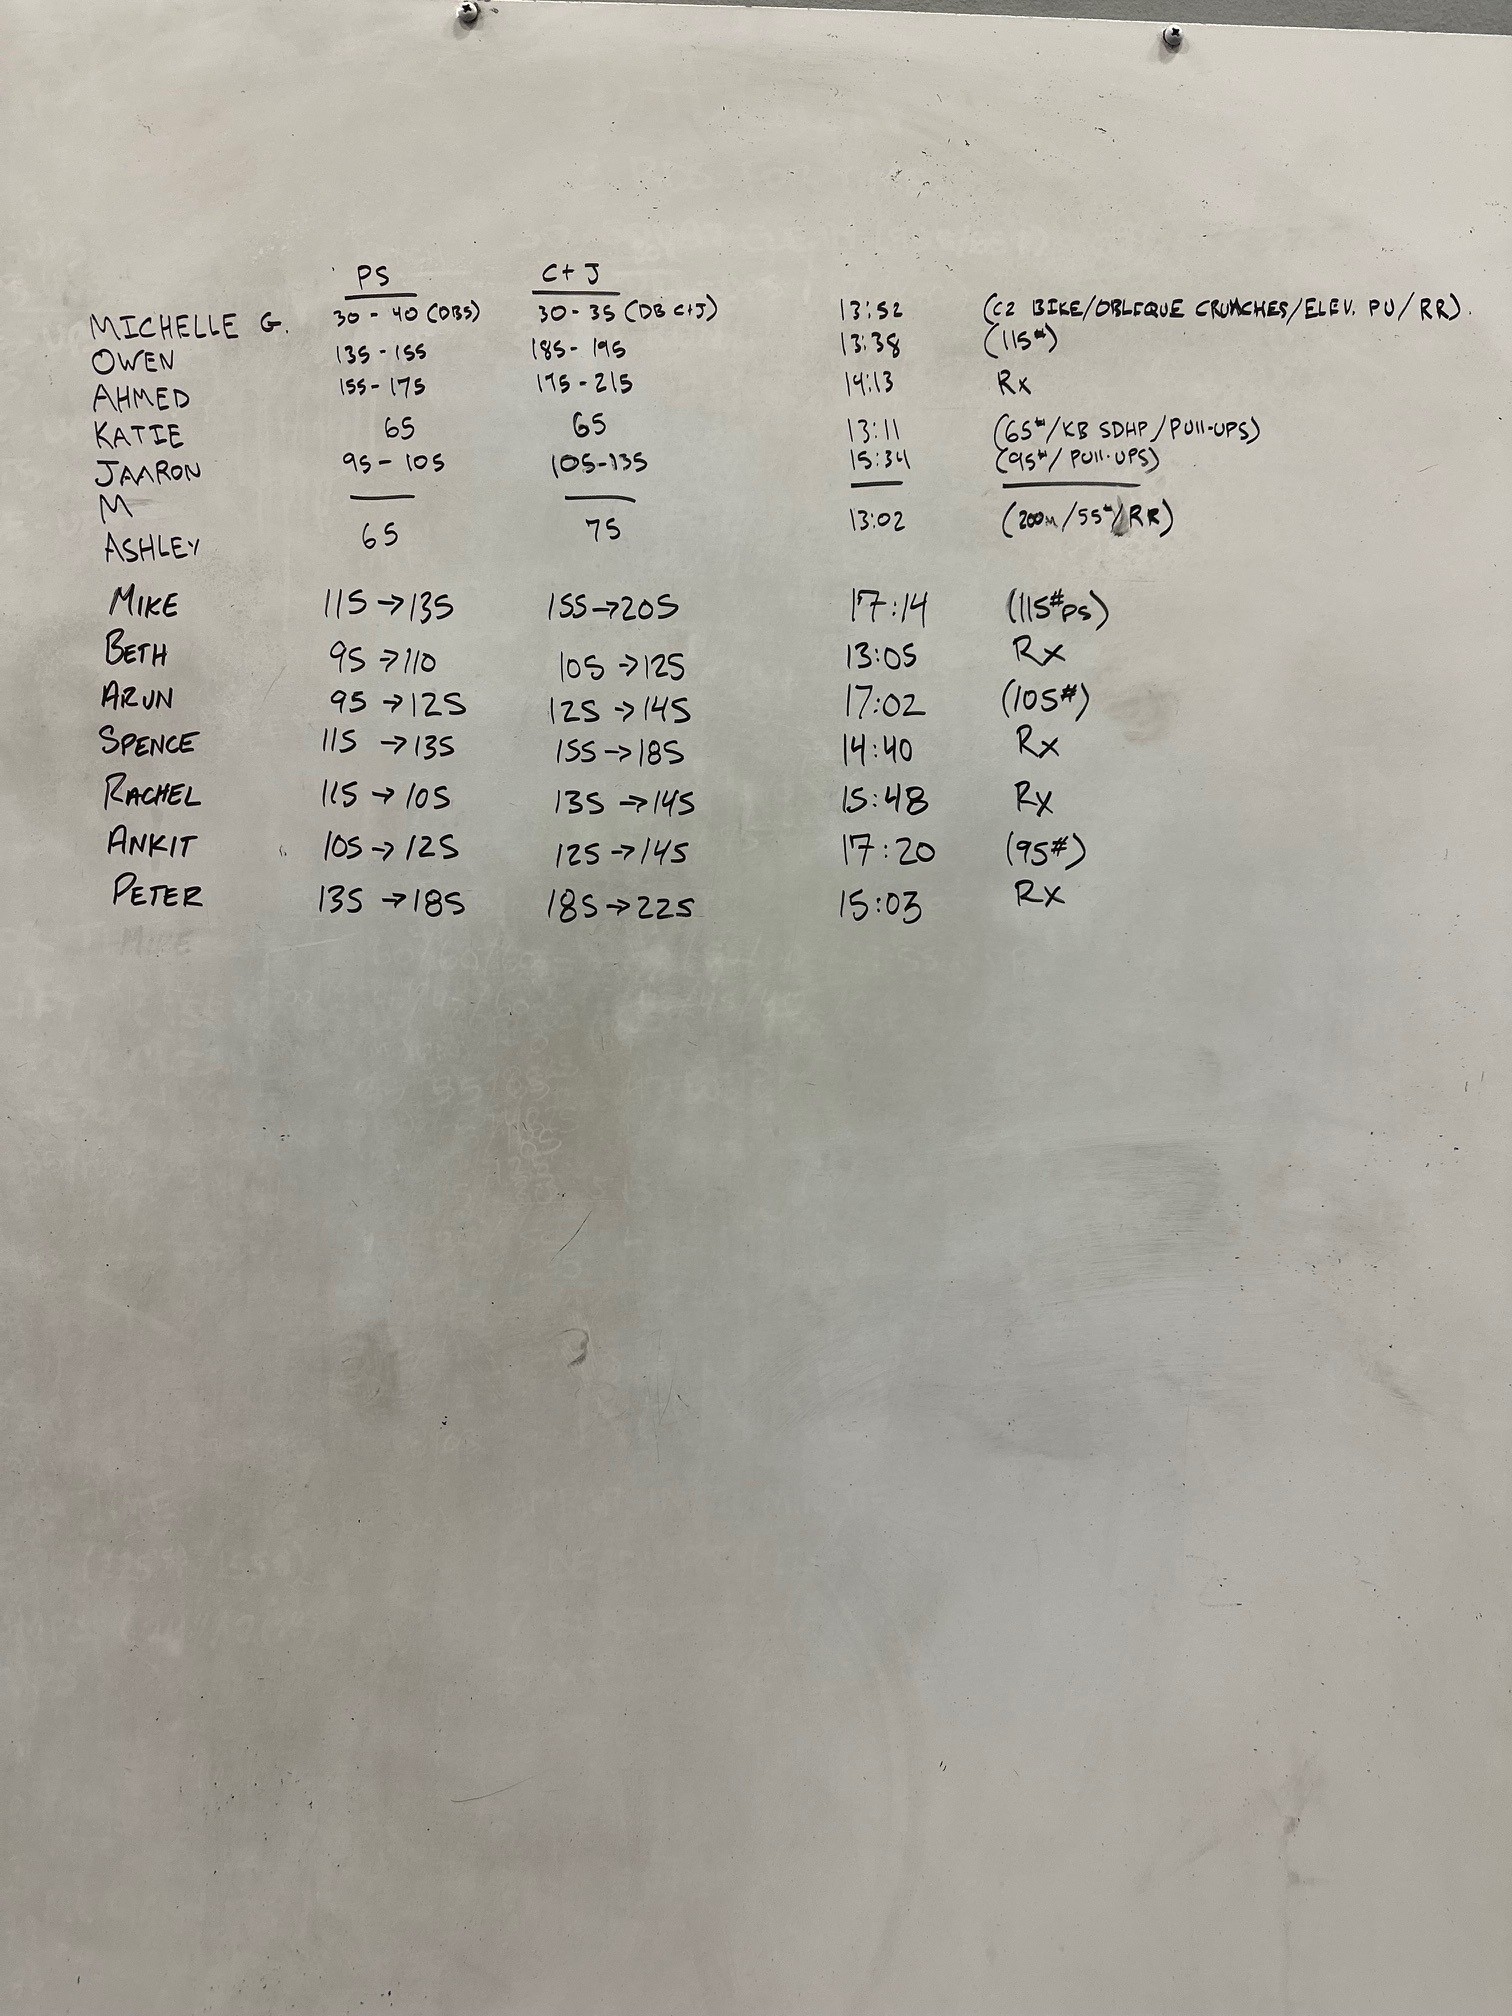 PS C+J
MICHELLE G. 30-40 (DBS) 30-35 (DB C+J) 13:52 (C2 BIKE/OBLIQUE CRUNCHES/ELEV. PU/RR).
OWEN 135-155 185-195 13:38 (115#)
AHMED 155-175 175-215 14:13 Rx
KATIE 65 65 13:11 (65#/KB SDHP/PUll-UPS)
JAARON 95-105 105-135 15:34 (95#/PUll-UPS)
M — — — —
ASHLEY 65 75 13:02 (200m/55#/RR)
MIKE 115→135 155→205 17:14 (115# PS)
BETH 95→110 105→125 13:05 Rx
ARUN 95→125 125→145 17:02 (105#)
SPENCE 115→135 155→185 14:40 Rx
RACHEL 115→105 135→145 15:48 Rx
ANKIT 105→125 125→145 17:20 (95#)
PETER 135→185 185→225 15:03 Rx
MIKE